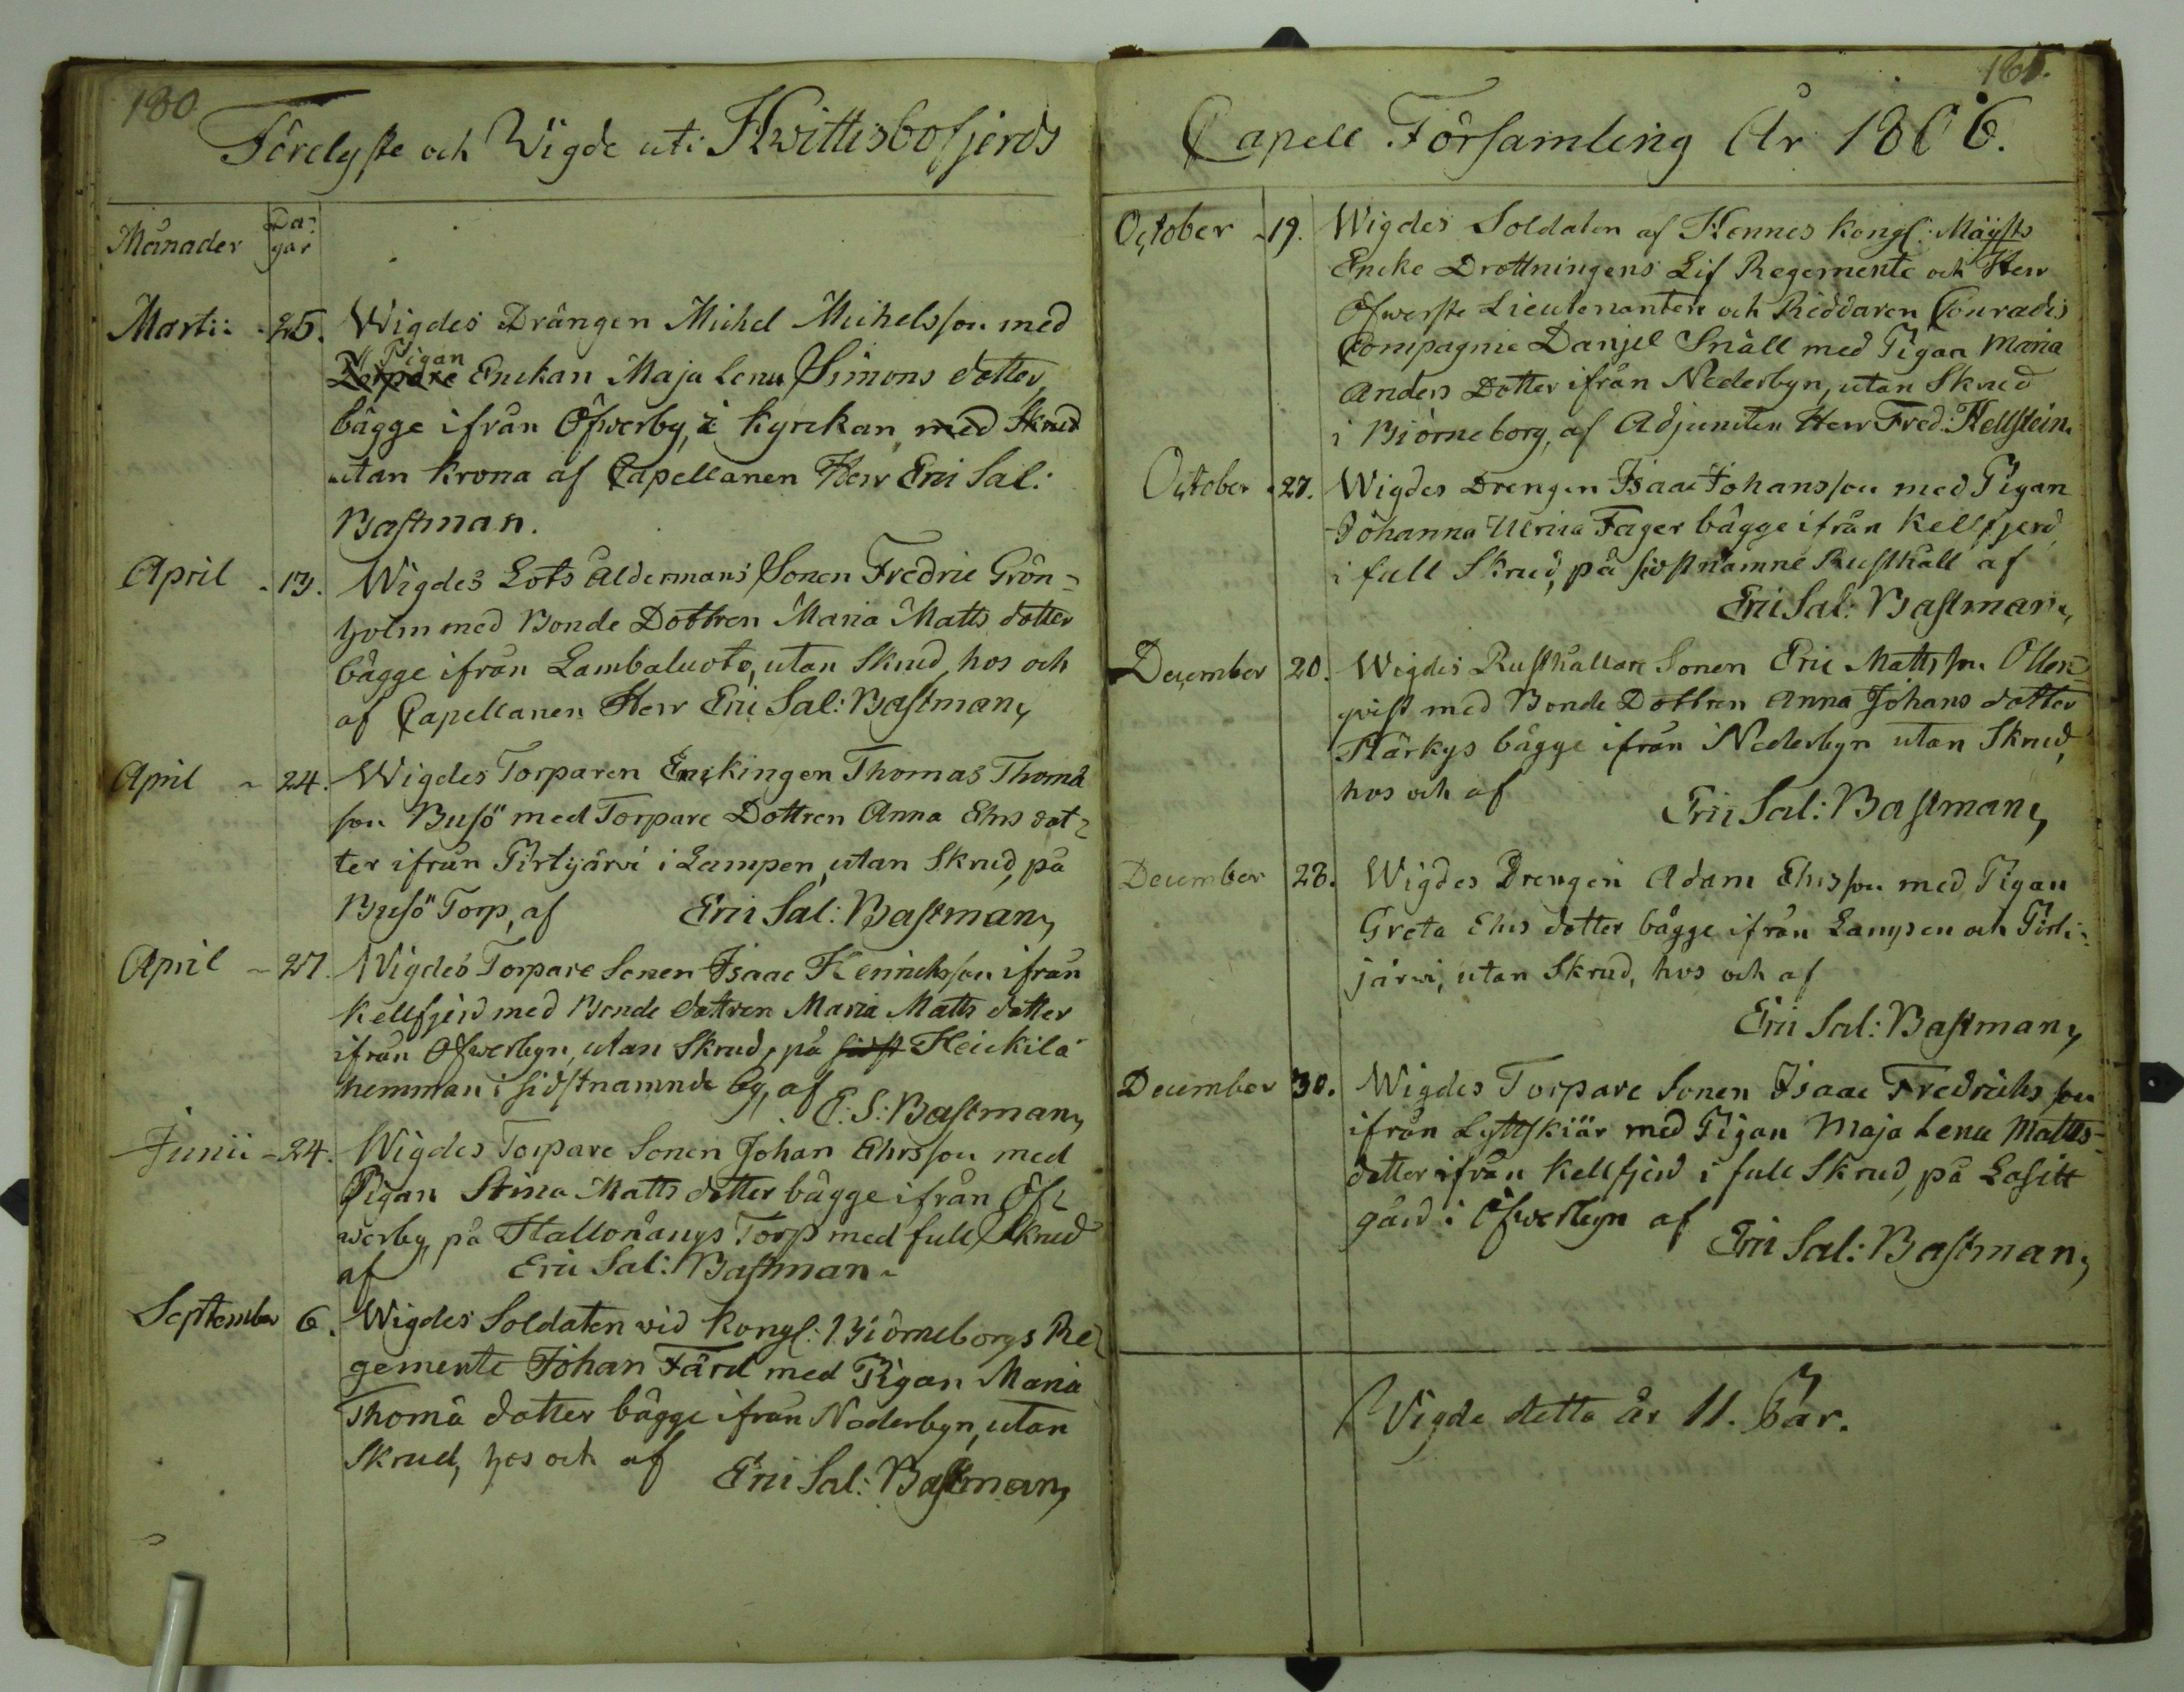 180
Förelyste och Wigde uti Hwittisbofjerds
Månader
Da-
gar
Martii 25. Wigdes Drängen Michel Michelsson med
Pigan
Torpare Enckan Maja Lena Simons dotter,
bägge ifrån Öfwerby, i kyrckan, med Skrud
utan Krona af Capellanen Herr Eric Sal:
Bastman.
April 13. Wigdes Lots Åldermans Sonen Fredric Grön=
holm med Bonde Dottren Maria Matts dotter
bägge ifrån Lambaluoto, utan Skrud, hos och
af Capellanen Herr Eric Sal: Bastman,
April 24. Wigdes Torparen Enckingen Thomas Thomä
son Busö med Torpare Dottren Anna Ehrs dot=
ter ifrån Pirtijärvi i Lampen, utan Skrud, på
Busö Torp, af Eric Sal: Bastman,
April 27. Wigdes Torpare Sonen Isaac Henrichsson ifrån
Kellfjerd med Bonde dottren Maria Matts dotter
ifrån Öfwerbyn, utan Skrud, på sidst Heickilä
hemman i sidstnamnde by, af E: S: Bastman,
Junii 24. Wigdes Torpare Sonen Johan Ehrsson med
Pigan Stina Matts dotter bägge ifrån Öf=
werby, på Hallonängs Torp med full Skrud
af Eric Sal: Bastman
September 6. Wigdes Soldaten wid Kongl: Biörneborgs Re=
gemente Johan Färd med Pigan Maria
Thomä dotter bägge ifrån Nederbyn, utan
Skrud, hos och af Eric Sal: Bastman,
181.
Capell Församling År 1806.
October 19. Wigdes Soldaten af Hennes Kongl: Mayjts
Encke Drottningens Lif Regemente och Herr
Öfwerste Lieutenanten och Riddaren Conradis
Compagnie Danjel Snäll med Pigan Maria
Anders Dotter ifrån Nederbyn, utan Skrud
i Biörneborg, af Adjuncten Herr Fred. Hellstein.
October 27. Wigdes Drengen Isaac Johansson med Pigan
Johanna Ulrica Fager bägge ifrån Kellfjerd,
i full Skrud, på sidstnämne Rusthåll af
Eric Sal: Bastman,
December 20. Wigdes Rusthållare Sonen Eric Mattsson Ollon=
qvist med Bonde Dottren Anna Johans dotter
Härkys bägge ifrån Nederbyn utan Skrud,
hos och af Eric Sal: Bastman,
December 28. Wigdes Drengen Adam Ehrsson med Pigan
Greta Ehrs dotter bägge ifrån Lampen och Pirti=
järvi, utan Skrud, hos och af
Eric Sal: Bastman,
December 30. Wigdes Torpare Sonen Isaac Fredrichs son
ifrån Lyttskiär med Pigan Maja Lena Matts=
dotter ifrån Kellfjerd i full Skrud, på Lasitt
gård i Öfwerbyn af Eric Sal: Bastman,
Wigde detta år 11. Par.